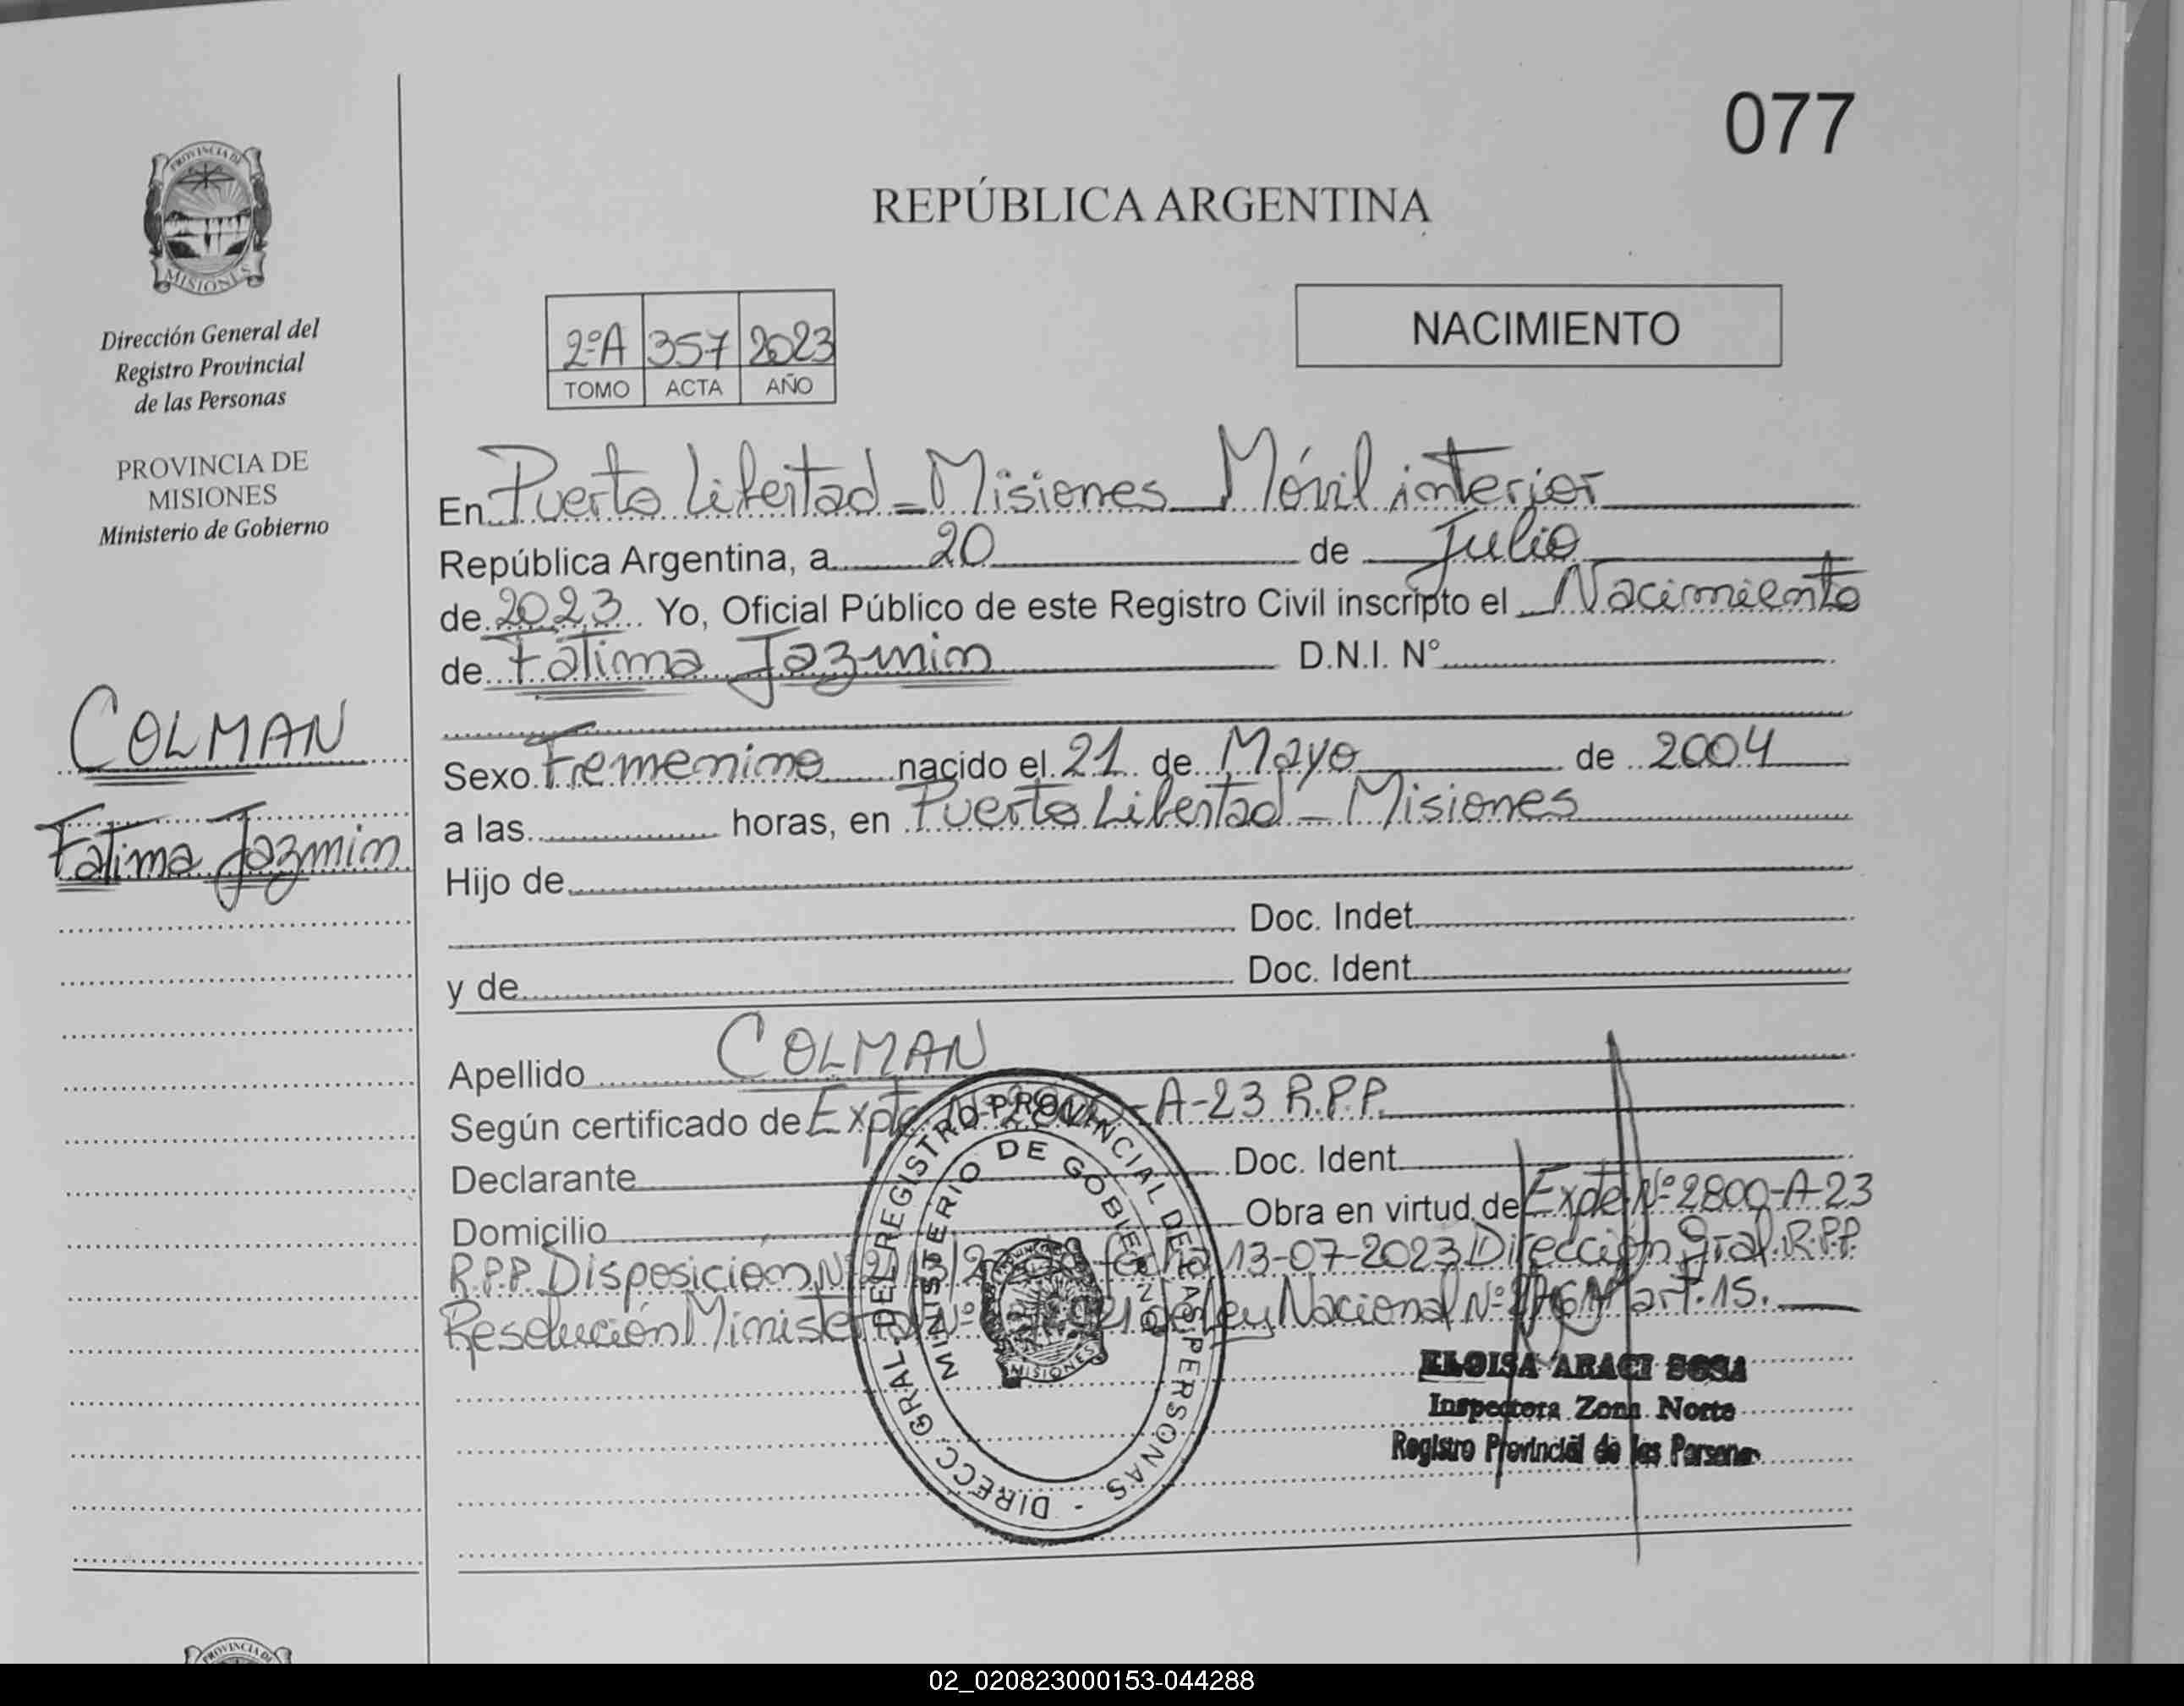 077
REPÚBLICA ARGENTINA
PROVINCIA DE
MISIONES
Dirección General del
Registro Provincial
de las Personas
PROVINCIA DE
MISIONES
Ministerio de Gobierno
COLMAN
Fatima Jazmin
2ºA 357 2023
TOMO ACTA AÑO
NACIMIENTO
En Puerto Libertad - Misiones - Móvil interior
República Argentina, a 20 de Julio
de 2023 Yo, Oficial Público de este Registro Civil inscripto el Nacimiento
de Fatima Jazmin D.N.I. Nº
Sexo Femenino nacido el 21 de Mayo de 2004
a las horas, en Puerto Libertad - Misiones
Hijo de
Doc. Indet.
y de Doc. Ident.
Apellido COLMAN
Según certificado de Expte -A-23 R.P.P.
Declarante Doc. Ident.
Domicilio Obra en virtud de Expte Nº 2800-A-23
R.P.P. Disposición Nº fecha 13-07-2023 Dirección Gral. R.P.P.
Resolución Ministerial Nº Ley Nacional Nº art. 15.
DIRECC GRAL DEL REGISTRO PROVINCIAL DE LAS PERSONAS -
MINISTERIO DE GOBIERNO
MISIONES
ELOISA ARACI SOSA
Inspectora Zona Norte
Registro Provincial de las Personas
PROVINCIA DE
02_020823000153-044288